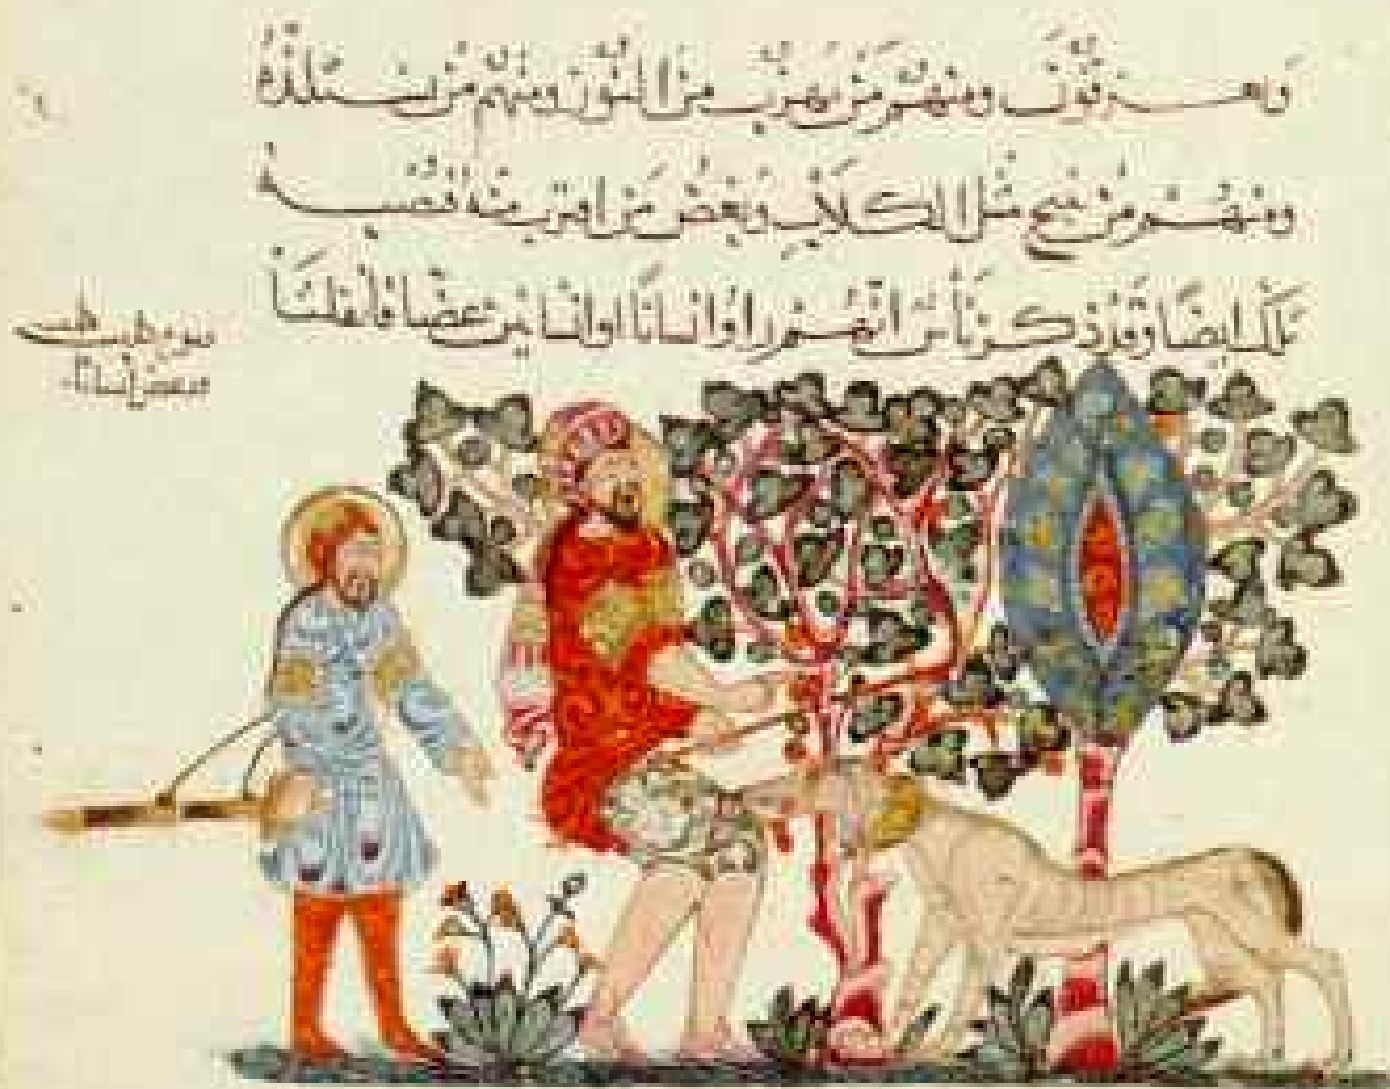 ويعرقون ومنهم من يهرب من النور ومنهم من يستلذه
ومنهم من ينبح مثل الكلاب وبعض من اقترب منه فتصيبه
تلك ايضا وقد ذكر ناس انهم راوا انسانا او انسانين عضا فافلتا
وبعض انسانا